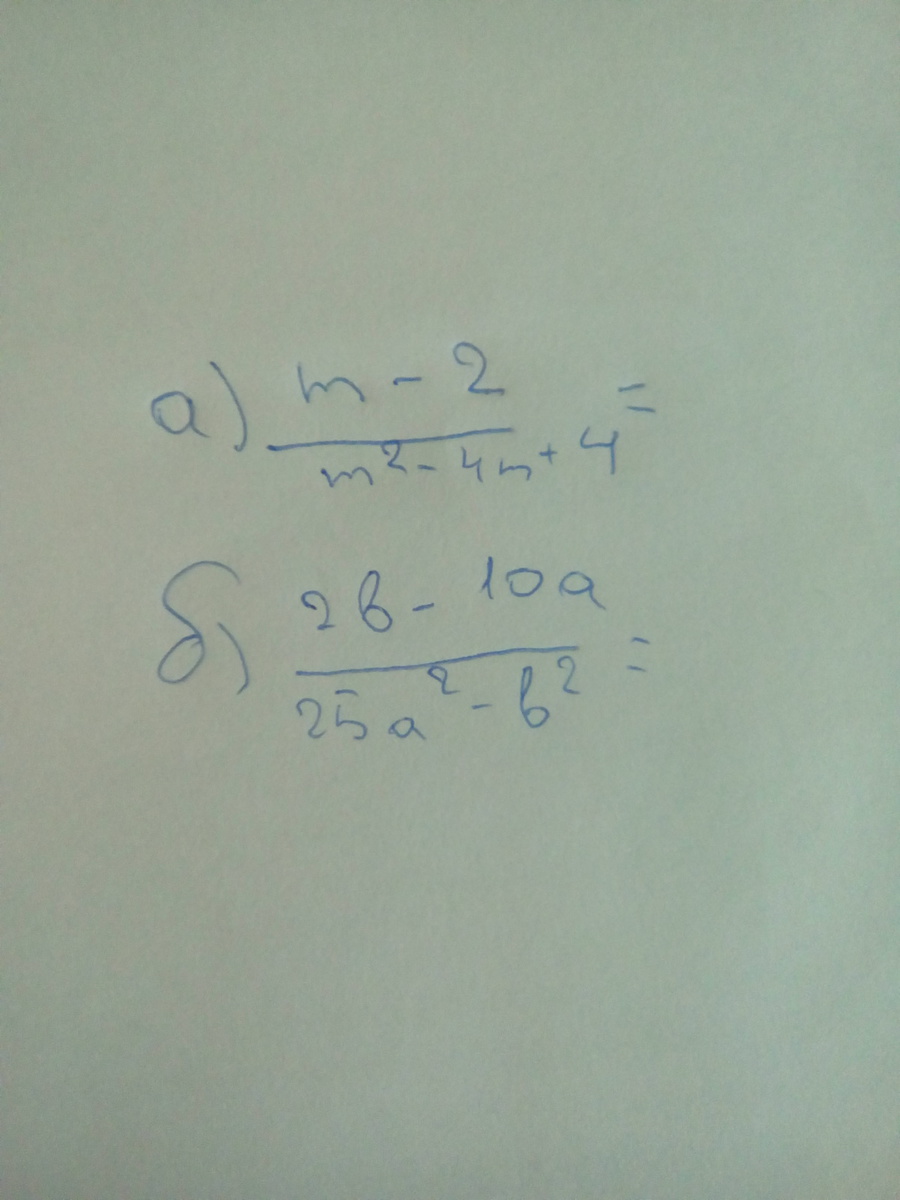 а) m - 2
m² - 4m + 4 =
б) 2b - 10a
25a² - b² =